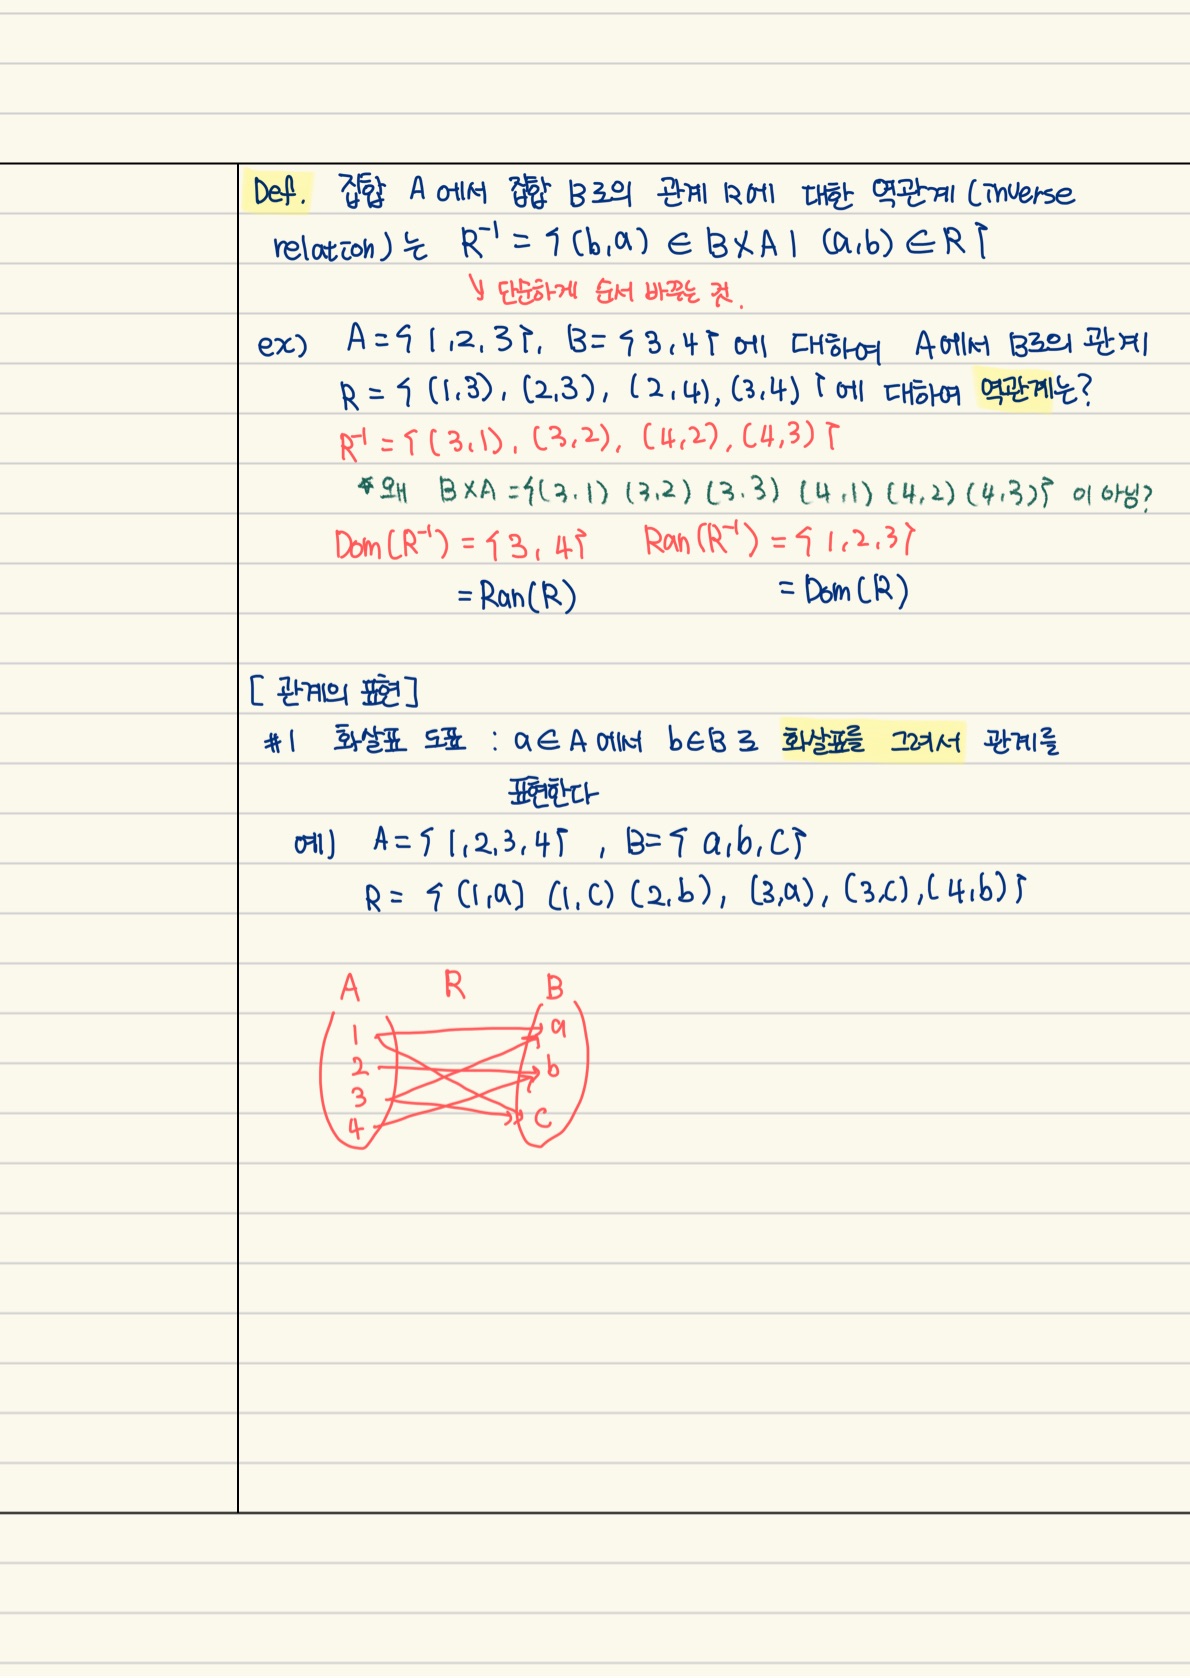 Def. 집합 A에서 집합 B로의 관계 R에 대한 역관계 (inverse
relation)는 R⁻¹ = {(b,a) ∈ B×A | (a,b) ∈ R}
↘ 단순하게 순서 바꾸는 것.
ex) A = {1,2,3}, B = {3,4}에 대하여 A에서 B로의 관계
R = {(1,3), (2,3), (2,4), (3,4)}에 대하여 역관계는?
R⁻¹ = {(3,1), (3,2), (4,2), (4,3)}
* 왜 B×A = {(3,1) (3,2) (3,3) (4,1) (4,2) (4,3)} 이 아닝?
Dom(R⁻¹) = {3,4} Ran(R⁻¹) = {1,2,3}
= Ran(R) = Dom(R)
[관계의 표현]
#1 화살표 도표 : a∈A에서 b∈B로 화살표를 그려서 관계를
표현한다
예) A = {1,2,3,4}, B = {a,b,c}
R = {(1,a) (1,c) (2,b), (3,a), (3,c), (4,b)}
A R B
1 a
2 b
3
4 c